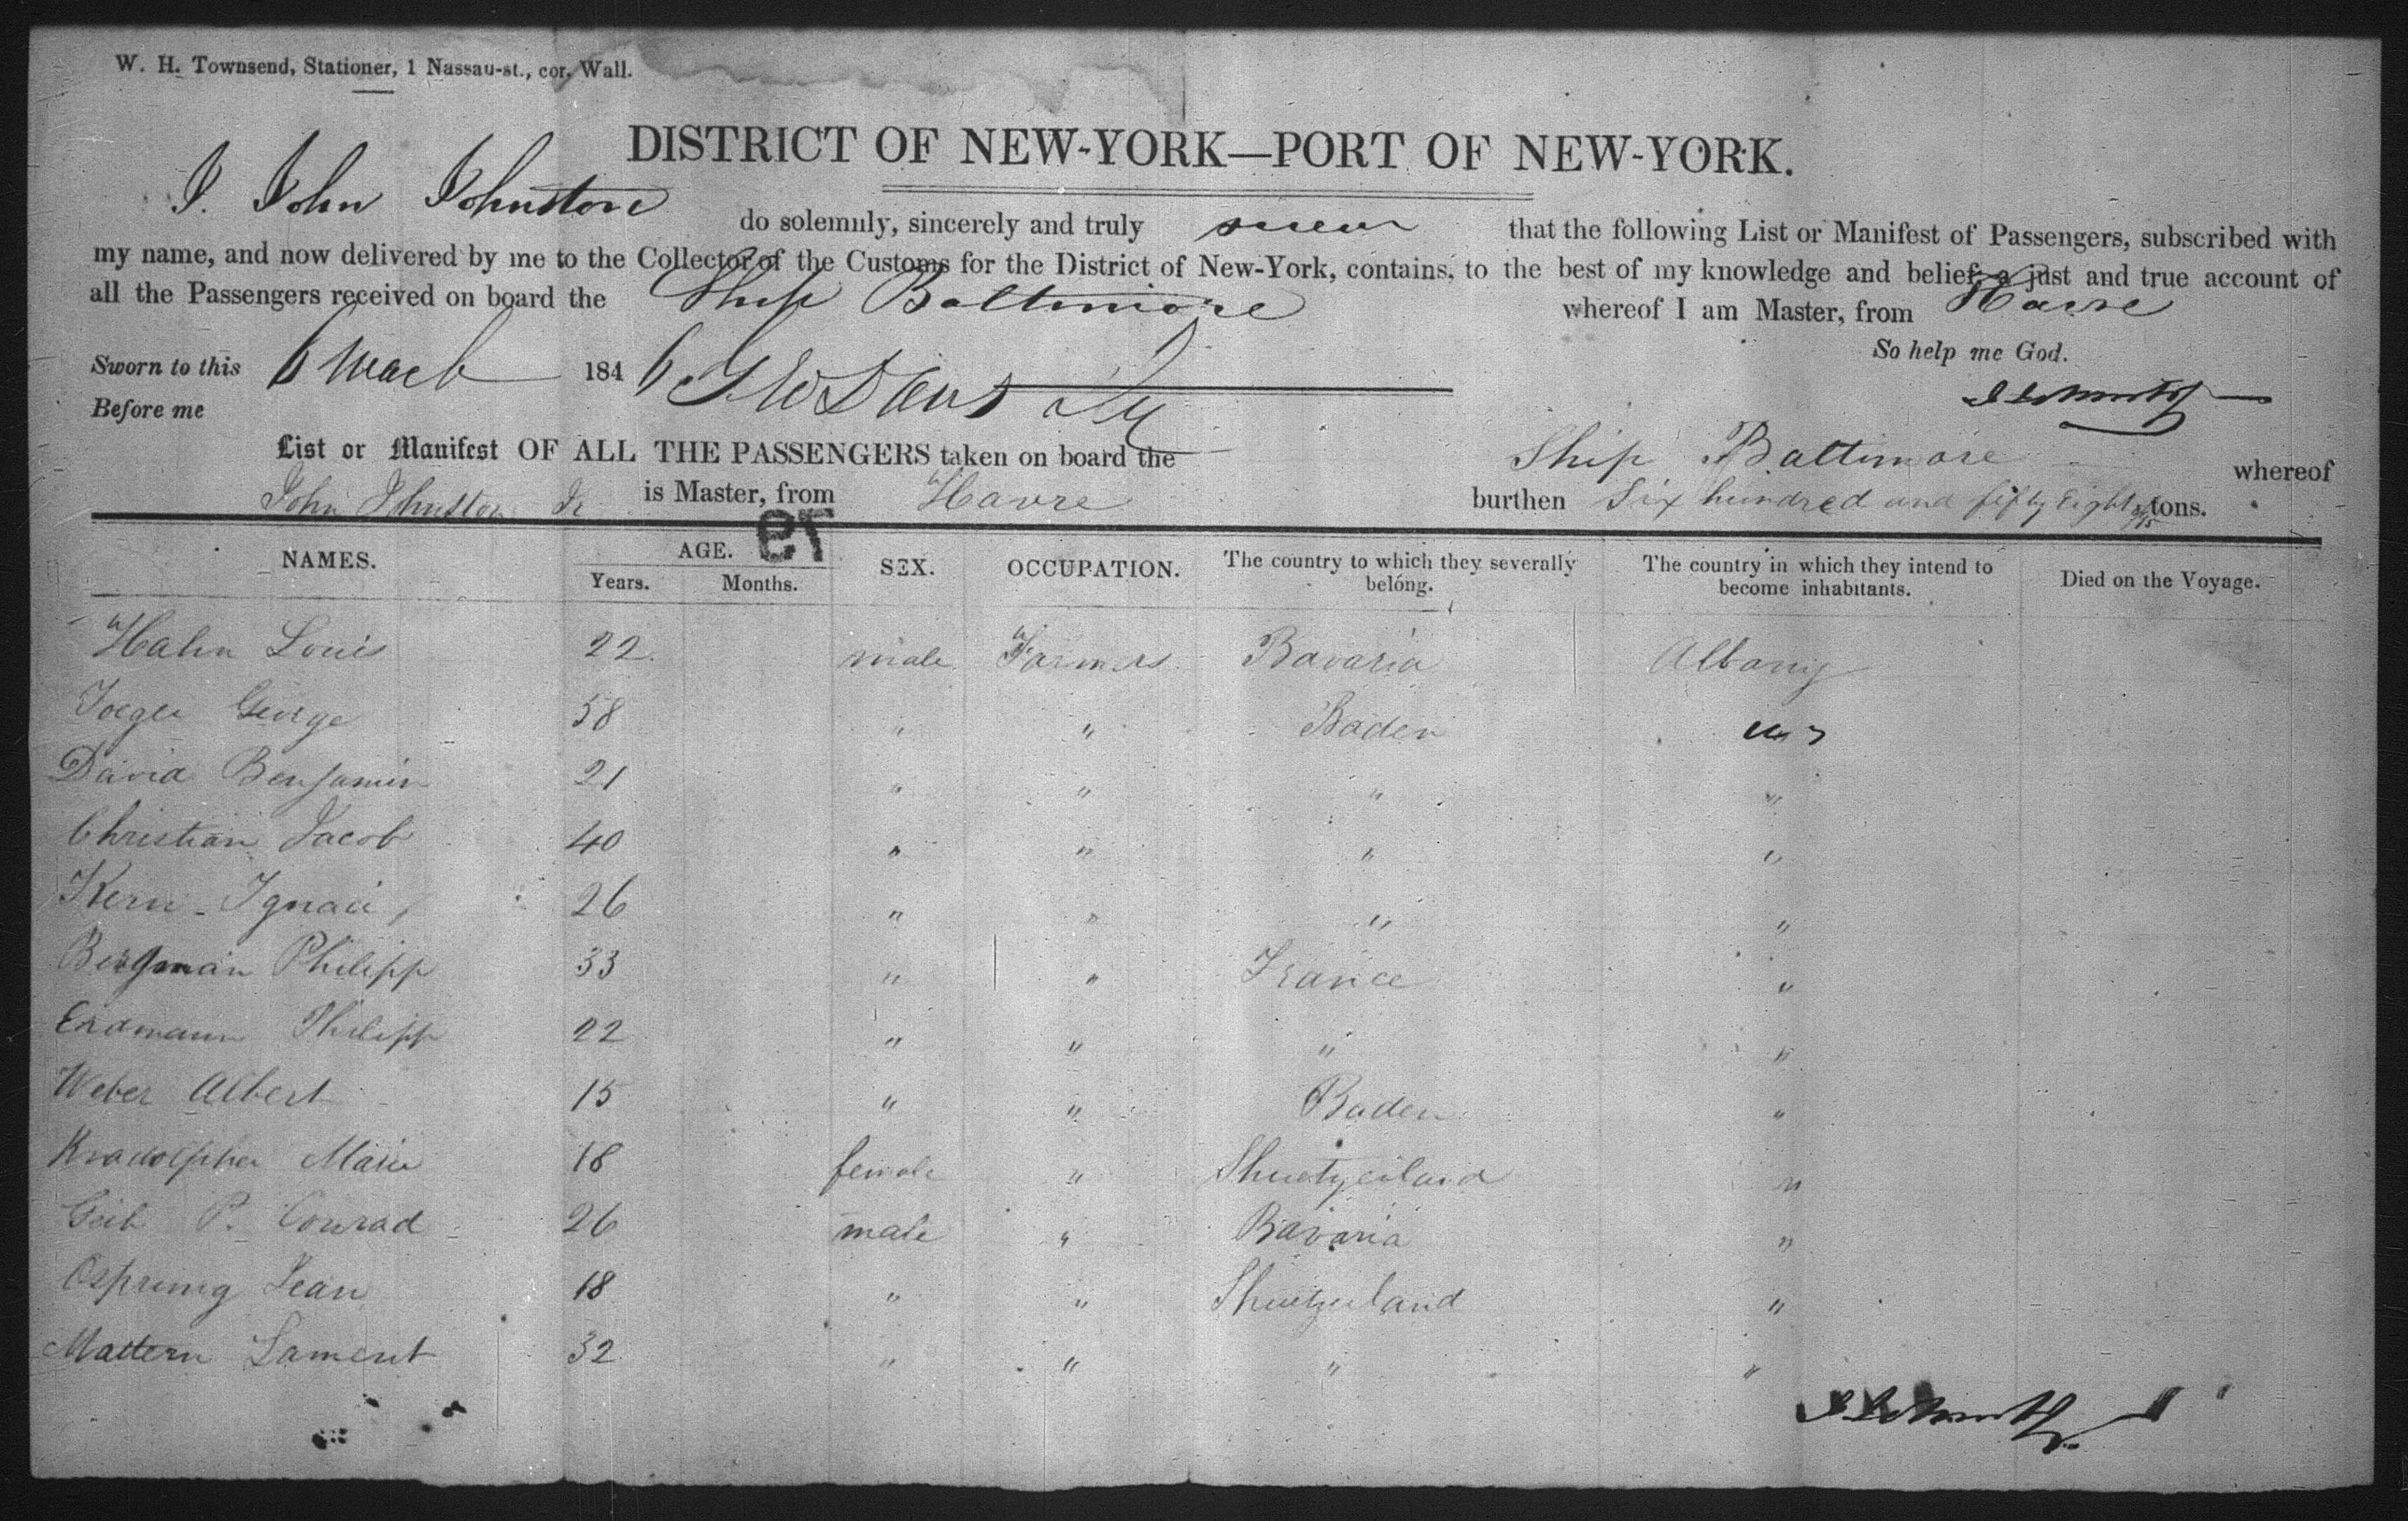 W. H. Townsend, Stationer, 1 Nassau-st., cor. Wall.
DISTRICT OF NEW-YORK—PORT OF NEW-YORK.
I. John Johnston do solemnly, sincerely and truly swear that the following List or Manifest of Passengers, subscribed with
my name, and now delivered by me to the Collector of the Customs for the District of New-York, contains, to the best of my knowledge and belief, a just and true account of
all the Passengers received on board the Ship Baltimore whereof I am Master, from Havre
So help me God.
Sworn to this 6 March 1846
Before me
List or Manifest OF ALL THE PASSENGERS taken on board the Ship Baltimore whereof
John Johnston Jr is Master, from Havre burthen Six hundred and fifty Eight tons.
NAMES. AGE. SEX. OCCUPATION. The country to which they severally belong. The country in which they intend to become inhabitants. Died on the Voyage.
Years. Months.
Hahn Louis 22 male Farmers Bavaria Albany
George 58 " " Baden
David Benjamin 21 " " " "
Christian Jacob 40 " " " "
Kern Ignaci 26 " " " "
Bergman Philipp 33 " " France "
Erdmann Philipp 22 " " " "
Weber Albert 15 " " Baden "
Kradolpher Marie 18 female " Shwetzerland "
Geib P. Conrad 26 male " Bavaria "
Osprung Jean 18 " " Shwetzerland "
Mattern Lament 32 " " " "